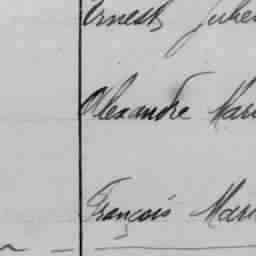 Ernest Jule
Alexandre Mari
François Mari